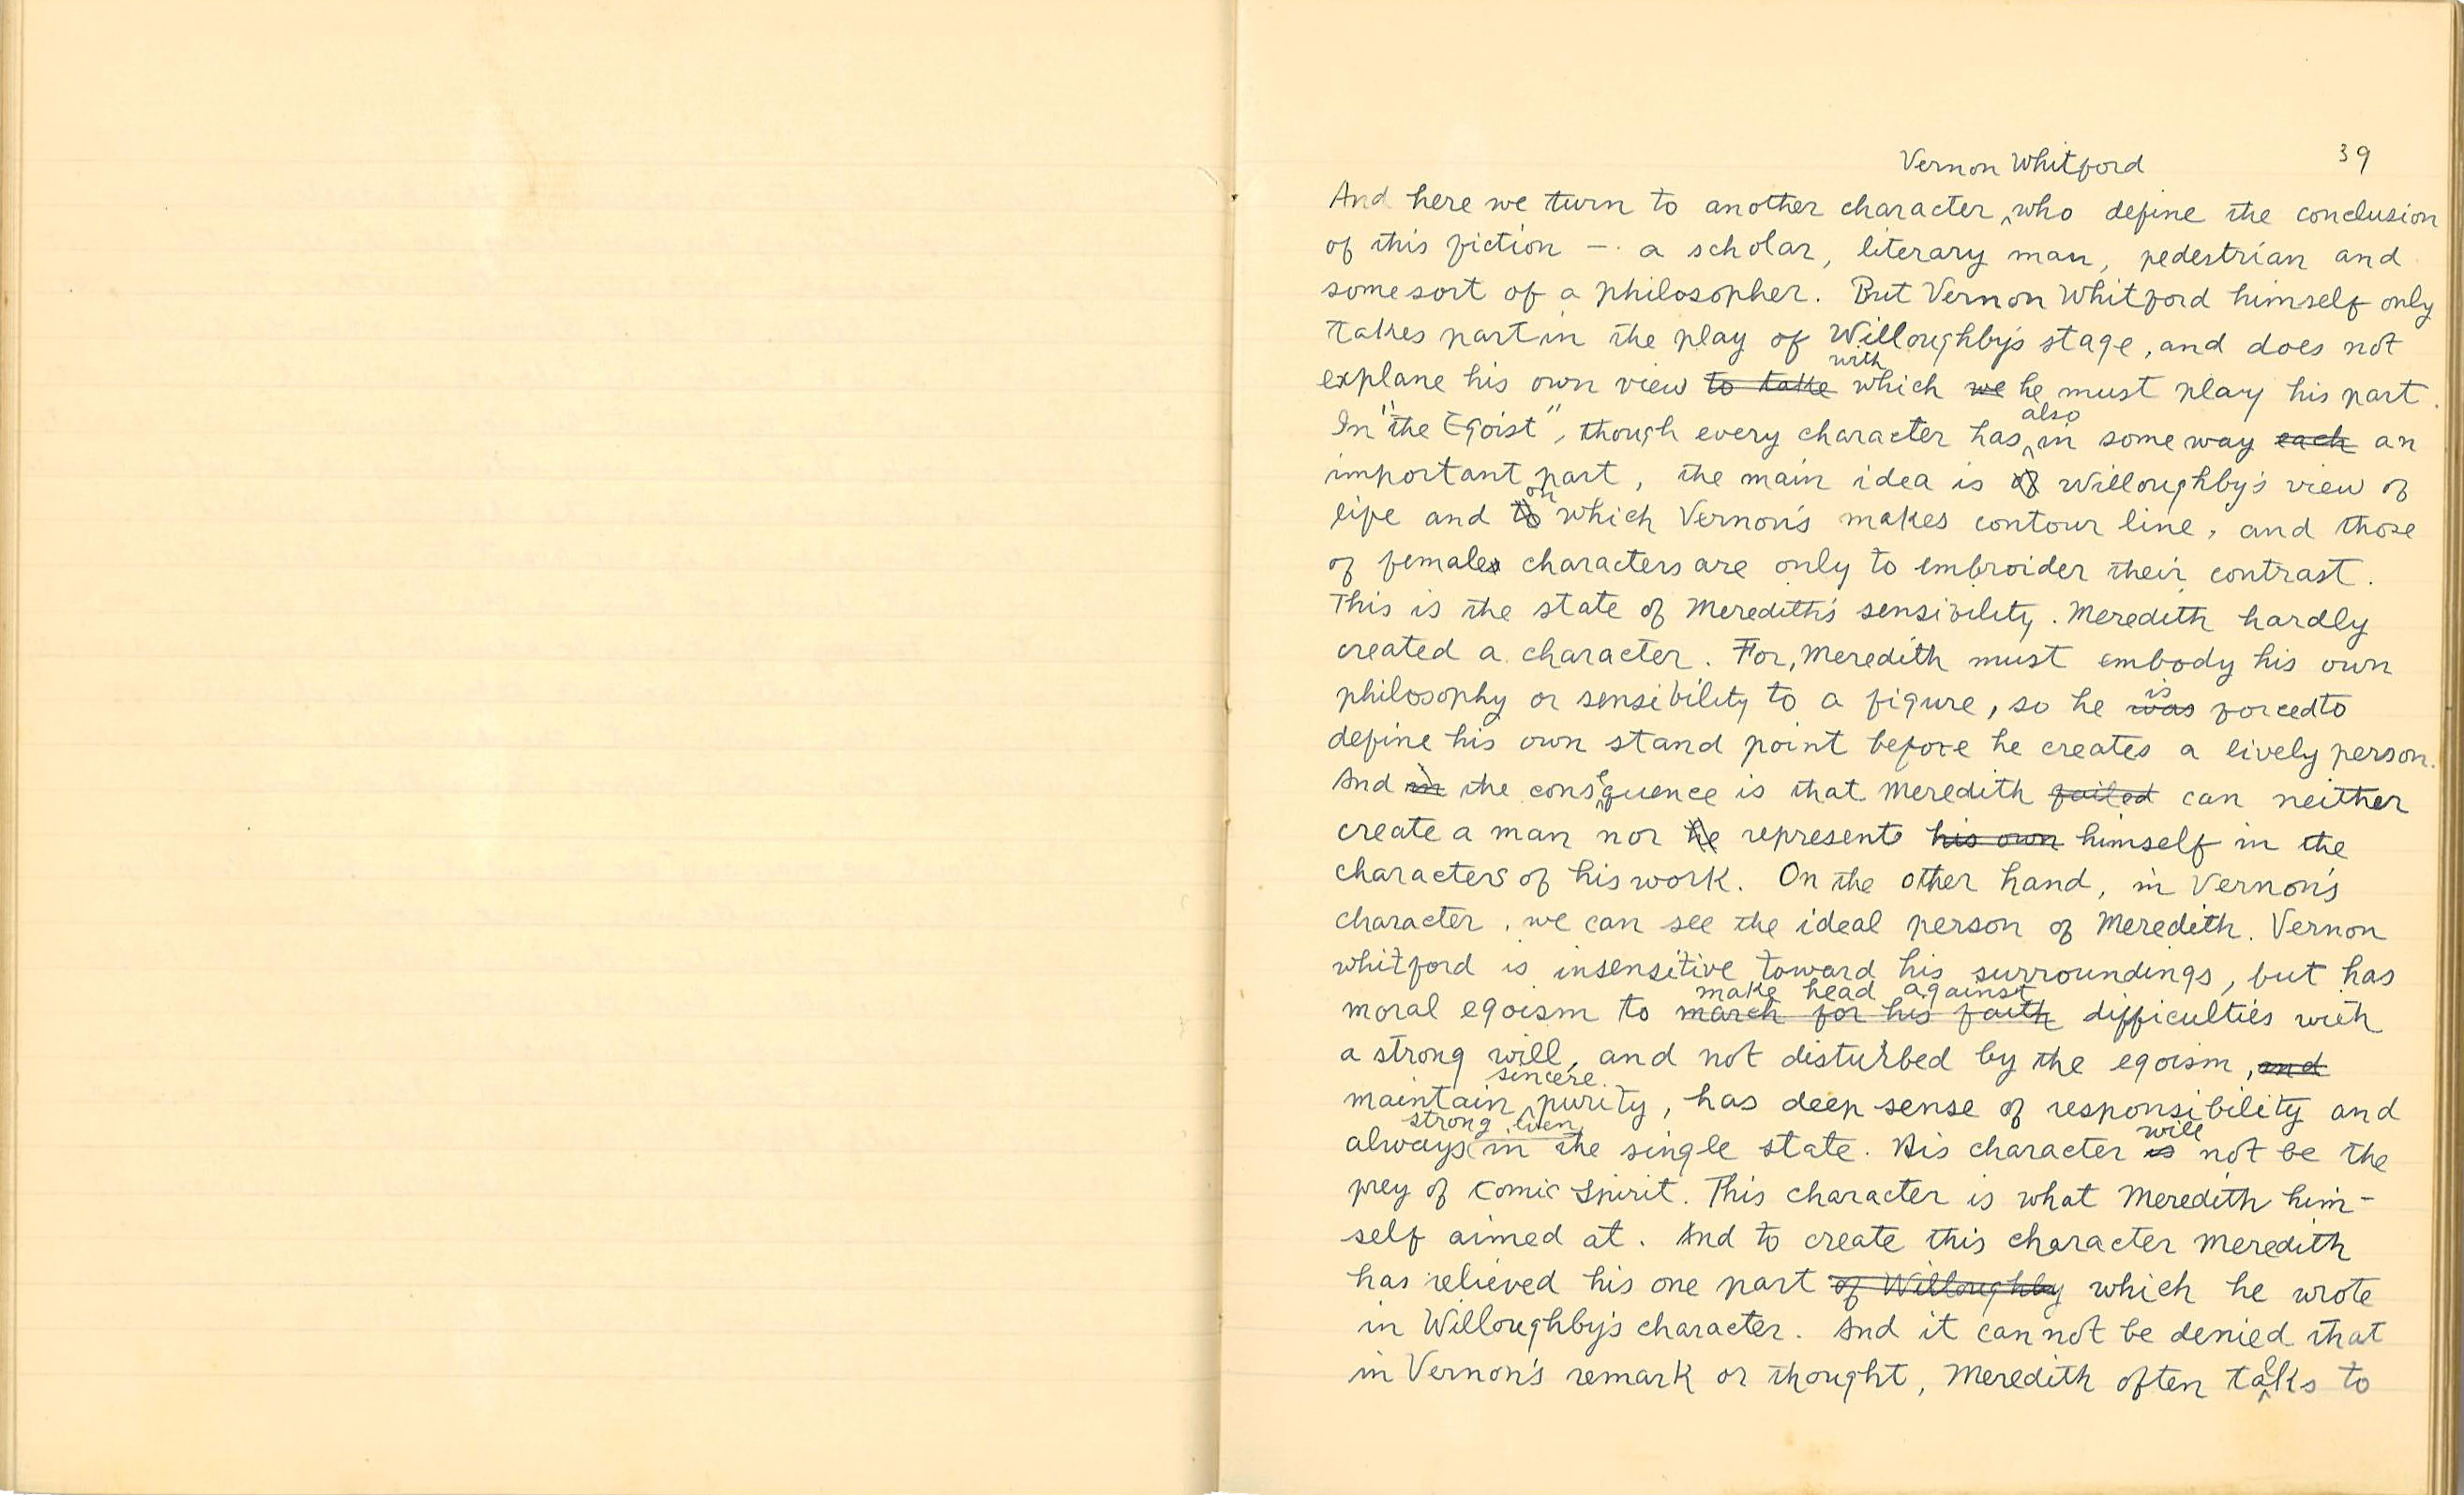 39
Vernon Whitford
And here we turn to another character, who define the conclusion
of this fiction — a scholar, literary man, pedestrian and
somesort of a philosopher. But Vernon Whitford himself only
takes part in the play of Willoughby's stage, and does not
with
explane his own view to take which we he must play his part.
also
In "the Egoist", though every character has in some way each an
important part, the main idea is of Willoughby's view of
on
life and to which Vernon's makes contour line, and those
of females characters are only to embroider their contrast.
This is the state of Meredith's sensibility. Meredith hardly
created a character. For, Meredith must embody his own
is
philosophy or sensibility to a figure, so he was forcedto
define his own stand point before he creates a lively person.
And in the consequence is that Meredith failed can neither
create a man nor he represents his own himself in the
characters of his work. On the other hand, in Vernon's
character, we can see the ideal person of Meredith. Vernon
whitford is insensitive toward his surroundings, but has
make head against
moral egoism to march for his faith difficulties with
a strong will, and not disturbed by the egoism, and
sincere
maintain purity, has deep sense of responsibility and
strong even will
always in the single state. His character is not be the
prey of Comic Spirit. This character is what Meredith him-
self aimed at. And to create this character Meredith
has relieved his one part of Willoughby which he wrote
in Willoughby's character. And it can not be denied that
in Vernon's remark or thought, Meredith often talks to